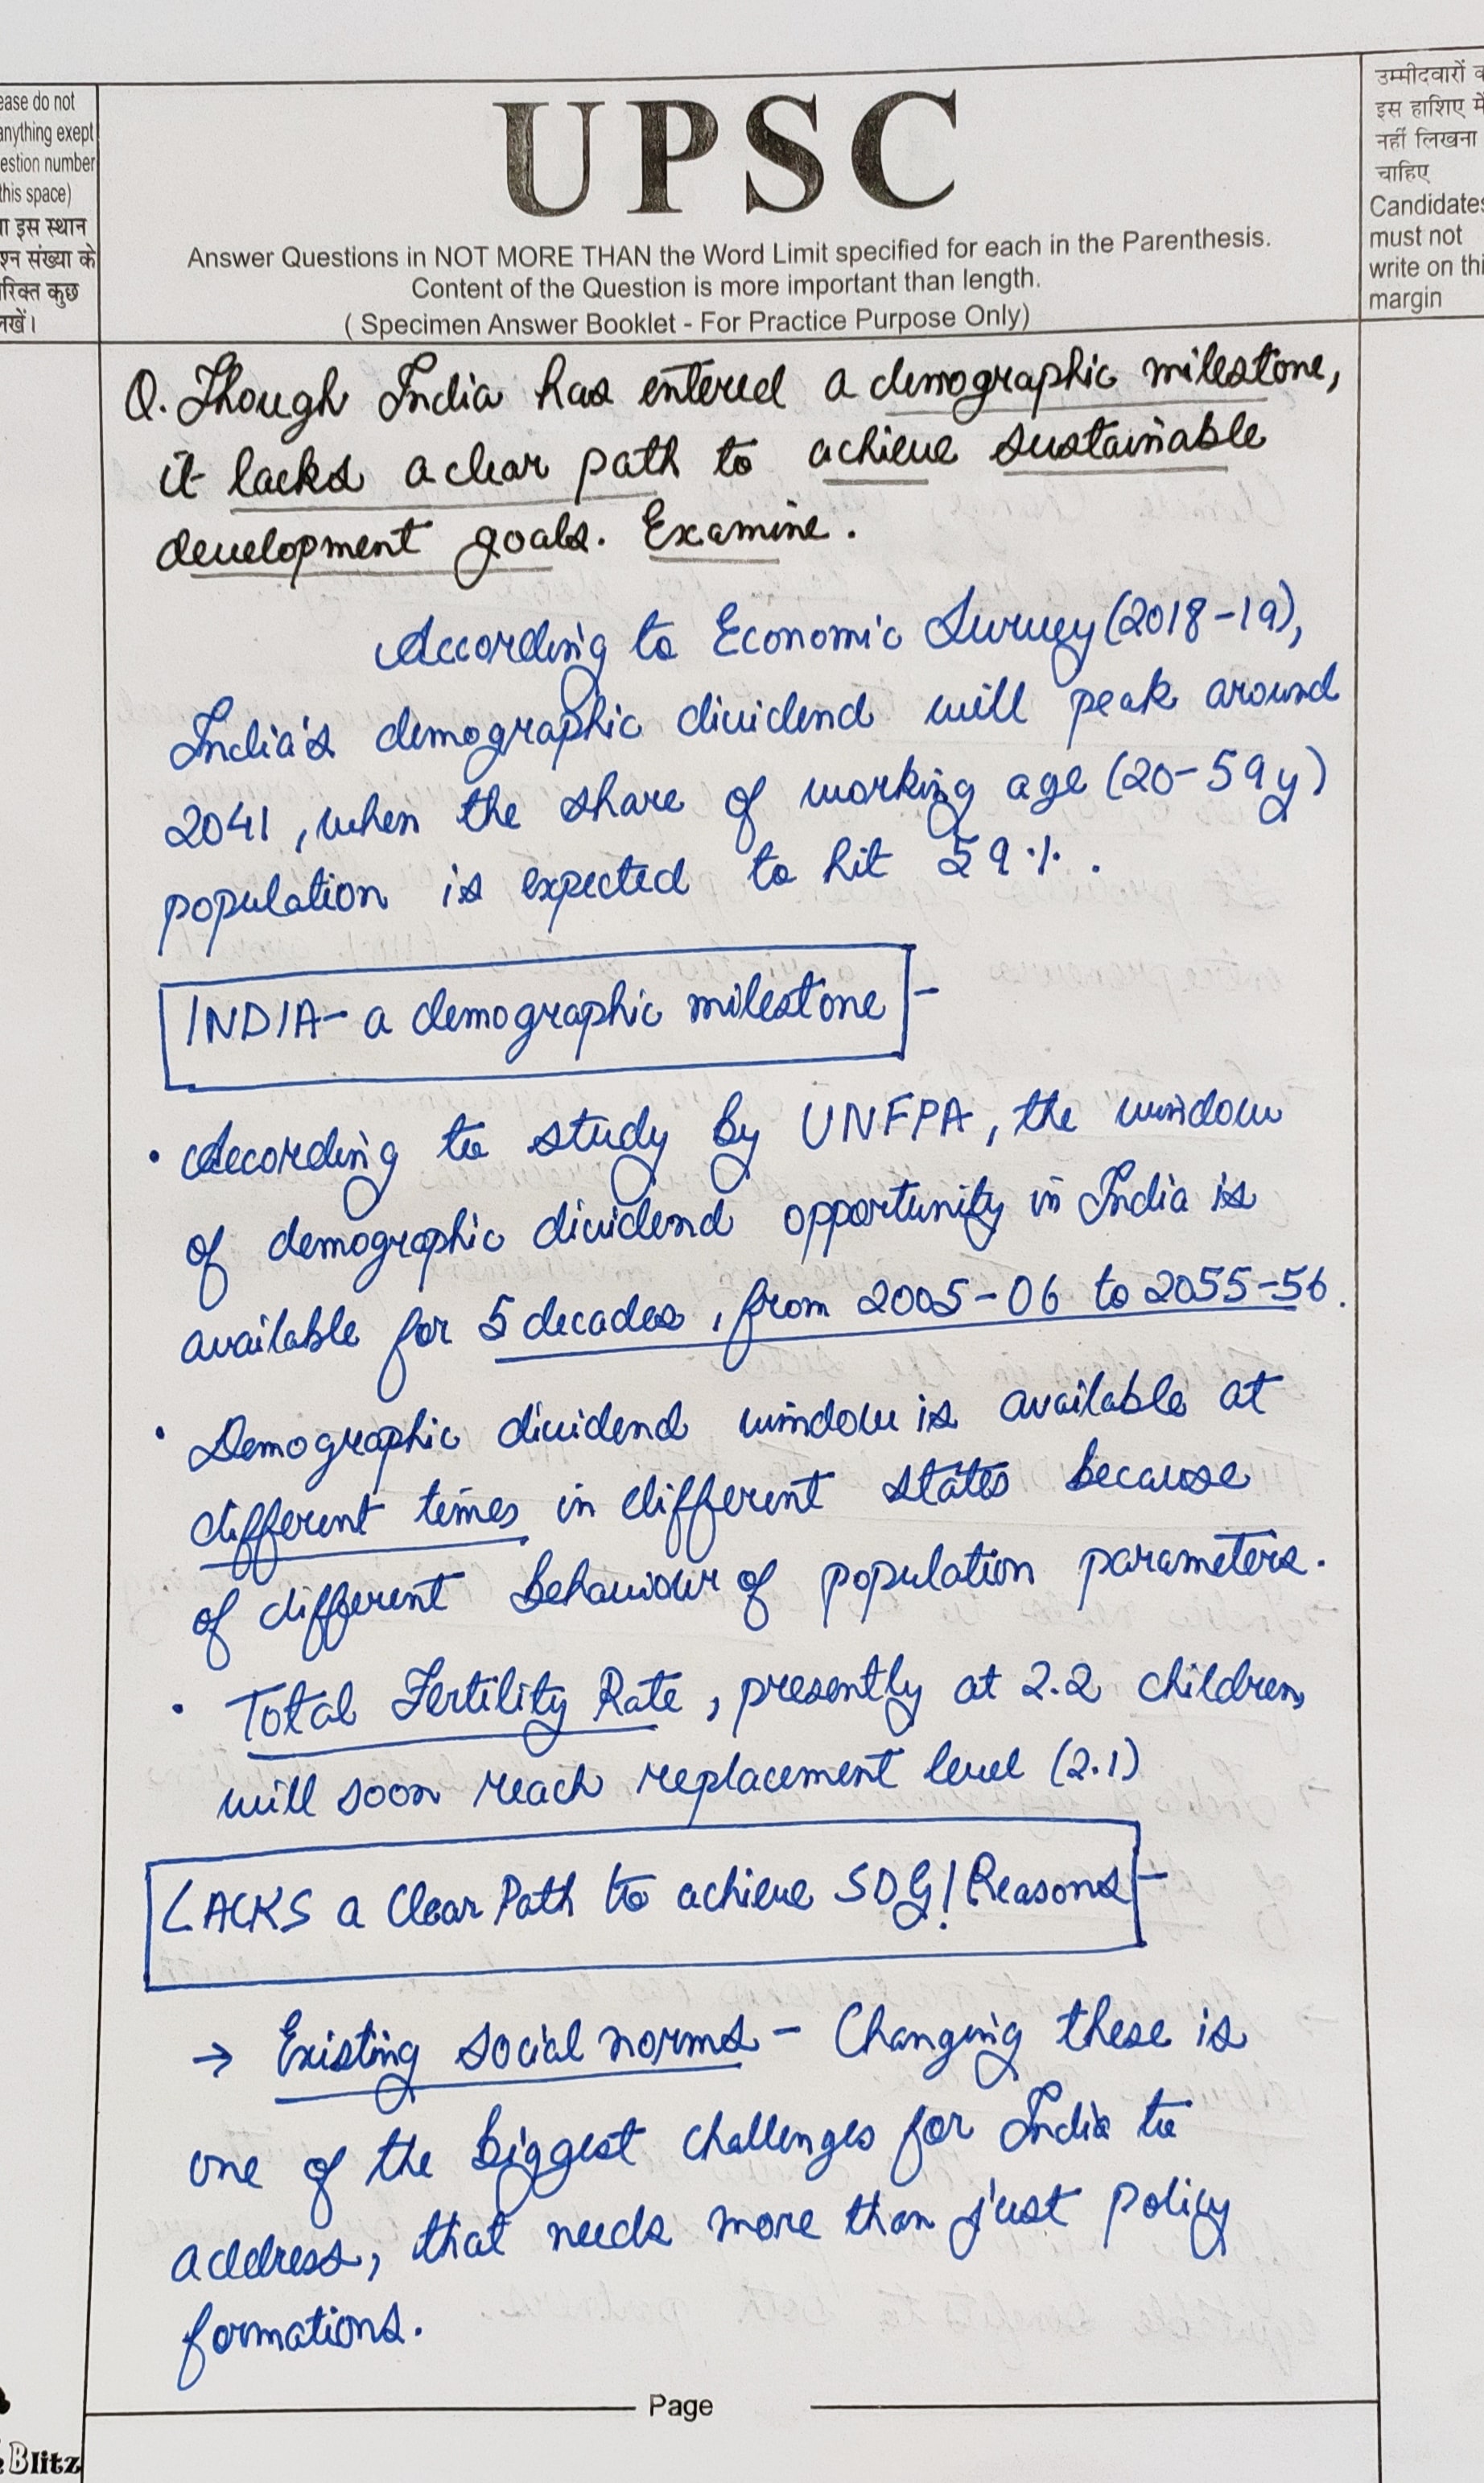 ease do not
anything exept
estion number
this space)
ा इस स्थान
श्न संख्या के
रिक्त कुछ
लखें।
UPSC
Answer Questions in NOT MORE THAN the Word Limit specified for each in the Parenthesis.
Content of the Question is more important than length.
( Specimen Answer Booklet - For Practice Purpose Only)
उम्मीदवारों क
इस हाशिए में
नहीं लिखना
चाहिए
Candidates
must not
write on thi
margin
Q. Though India has entered a demographic milestone,
it lacks a clear path to achieve sustainable
development goals. Examine.
According to Economic Survey (2018-19),
India's demographic dividend will peak around
2041, when the share of working age (20-59y)
population is expected to hit 59%.
INDIA- a demographic milestone -
• According to study by UNFPA, the window
of demographic dividend opportunity in India is
available for 5 decades, from 2005-06 to 2055-56.
• Demographic dividend window is available at
different times in different states because
of different behaviour of population parameters.
• Total Fertility Rate, presently at 2.2 children,
will soon reach replacement level (2.1)
LACKS a Clear Path to achieve SDG! Reasons -
→ Existing social norms - Changing these is
one of the biggest challenges for India to
address, that needs more than just policy
formations.
Page
Blitz